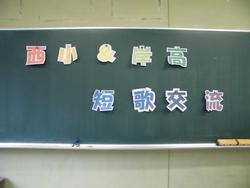 西小&岸高
短歌交流